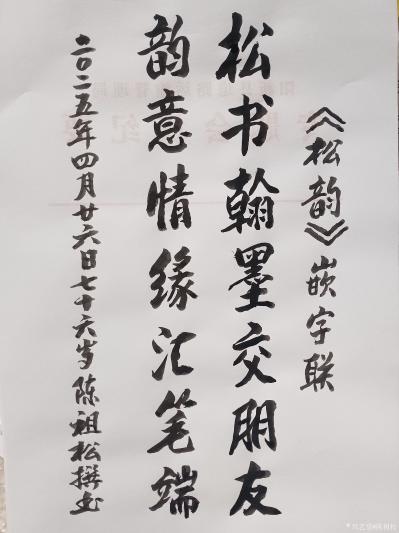 《松韵》嵌字联
松书翰墨交朋友
韵意情缘汇笔端
二〇二五年四月廿六日七十六岁陈祖松撰书